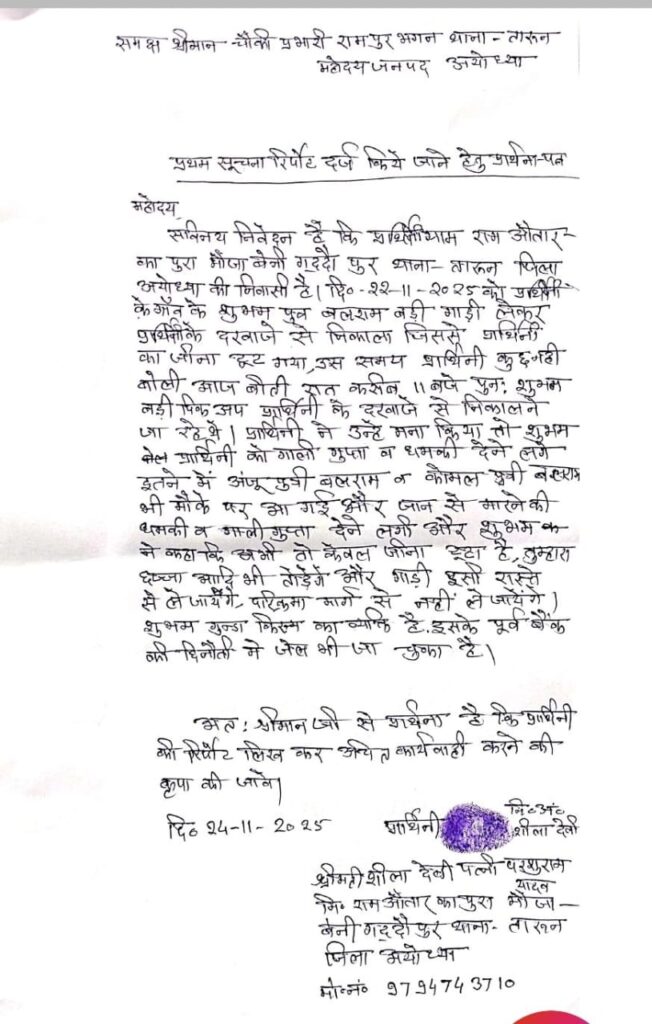 समक्ष श्रीमान चौकी प्रभारी रामपुर भगन थाना - तारून
महोदय जनपद अयोध्या
प्रथम सूचना रिर्पोट दर्ज किये जाने हेतु प्रार्थना-पत्र
महोदय
सविनय निवेदन है कि राम औतार-
का पुरा मौजा बेनी गद्दौपुर थाना - तारून जिला
अयोध्या की निवासी है। दि०-22-11-2025 को प्रार्थिनी
के गाँव के शुभम पुत्र बलराम बड़ी गाड़ी लेकर
प्रार्थिनी के दरवाजे से निकाला जिससे प्रार्थिनी
का जीना टूट गया, उस समय प्रार्थिनी कुछ नही
बोली आज बीती रात करीब 11 बजे पुन: शुभम
बड़ी पिक अप प्रार्थिनी के दरवाजे से निकालने
जा रहे थे। प्रार्थिनी ने उन्हे मना किया तो शुभम
प्रार्थिनी को गाली गुप्ता व धमकी देने लगे
इतने में अंजू पुत्री बलराम व कोमल पुत्री बलराम
भी मौके पर आ गई और जान से मारने की
धमकी व गाली गुप्ता देने लगी और शुभम
ने कहा कि अभी तो केवल जीना टूटा है, तुम्हारा
छज्जा आदि भी तोड़ेगें और गाड़ी इसी रास्ते
से ले जायेंगे, परिक्रमा मार्ग से नहीं ले जायेंगे।
शुभम गुन्डा किस्म का व्यक्ति है. इसके पूर्व बैंक
की में जेल भी जा चुका है।
अत: श्रीमान जी से प्रार्थना है कि प्रार्थिनी
की रिर्पोट लिख कर उचित कार्यवाही करने की
कृपा की जावे।
दि० 24-11-2025 प्रार्थिनी नि०अं०
शीला देवी
श्रीमती शीला देवी पत्नी परशुराम
यादव
नि० राम औतार का पुरा मौजा -
बेनी गद्दौपुर थाना - तारून
जिला अयोध्या
मो०नं० 9794743710